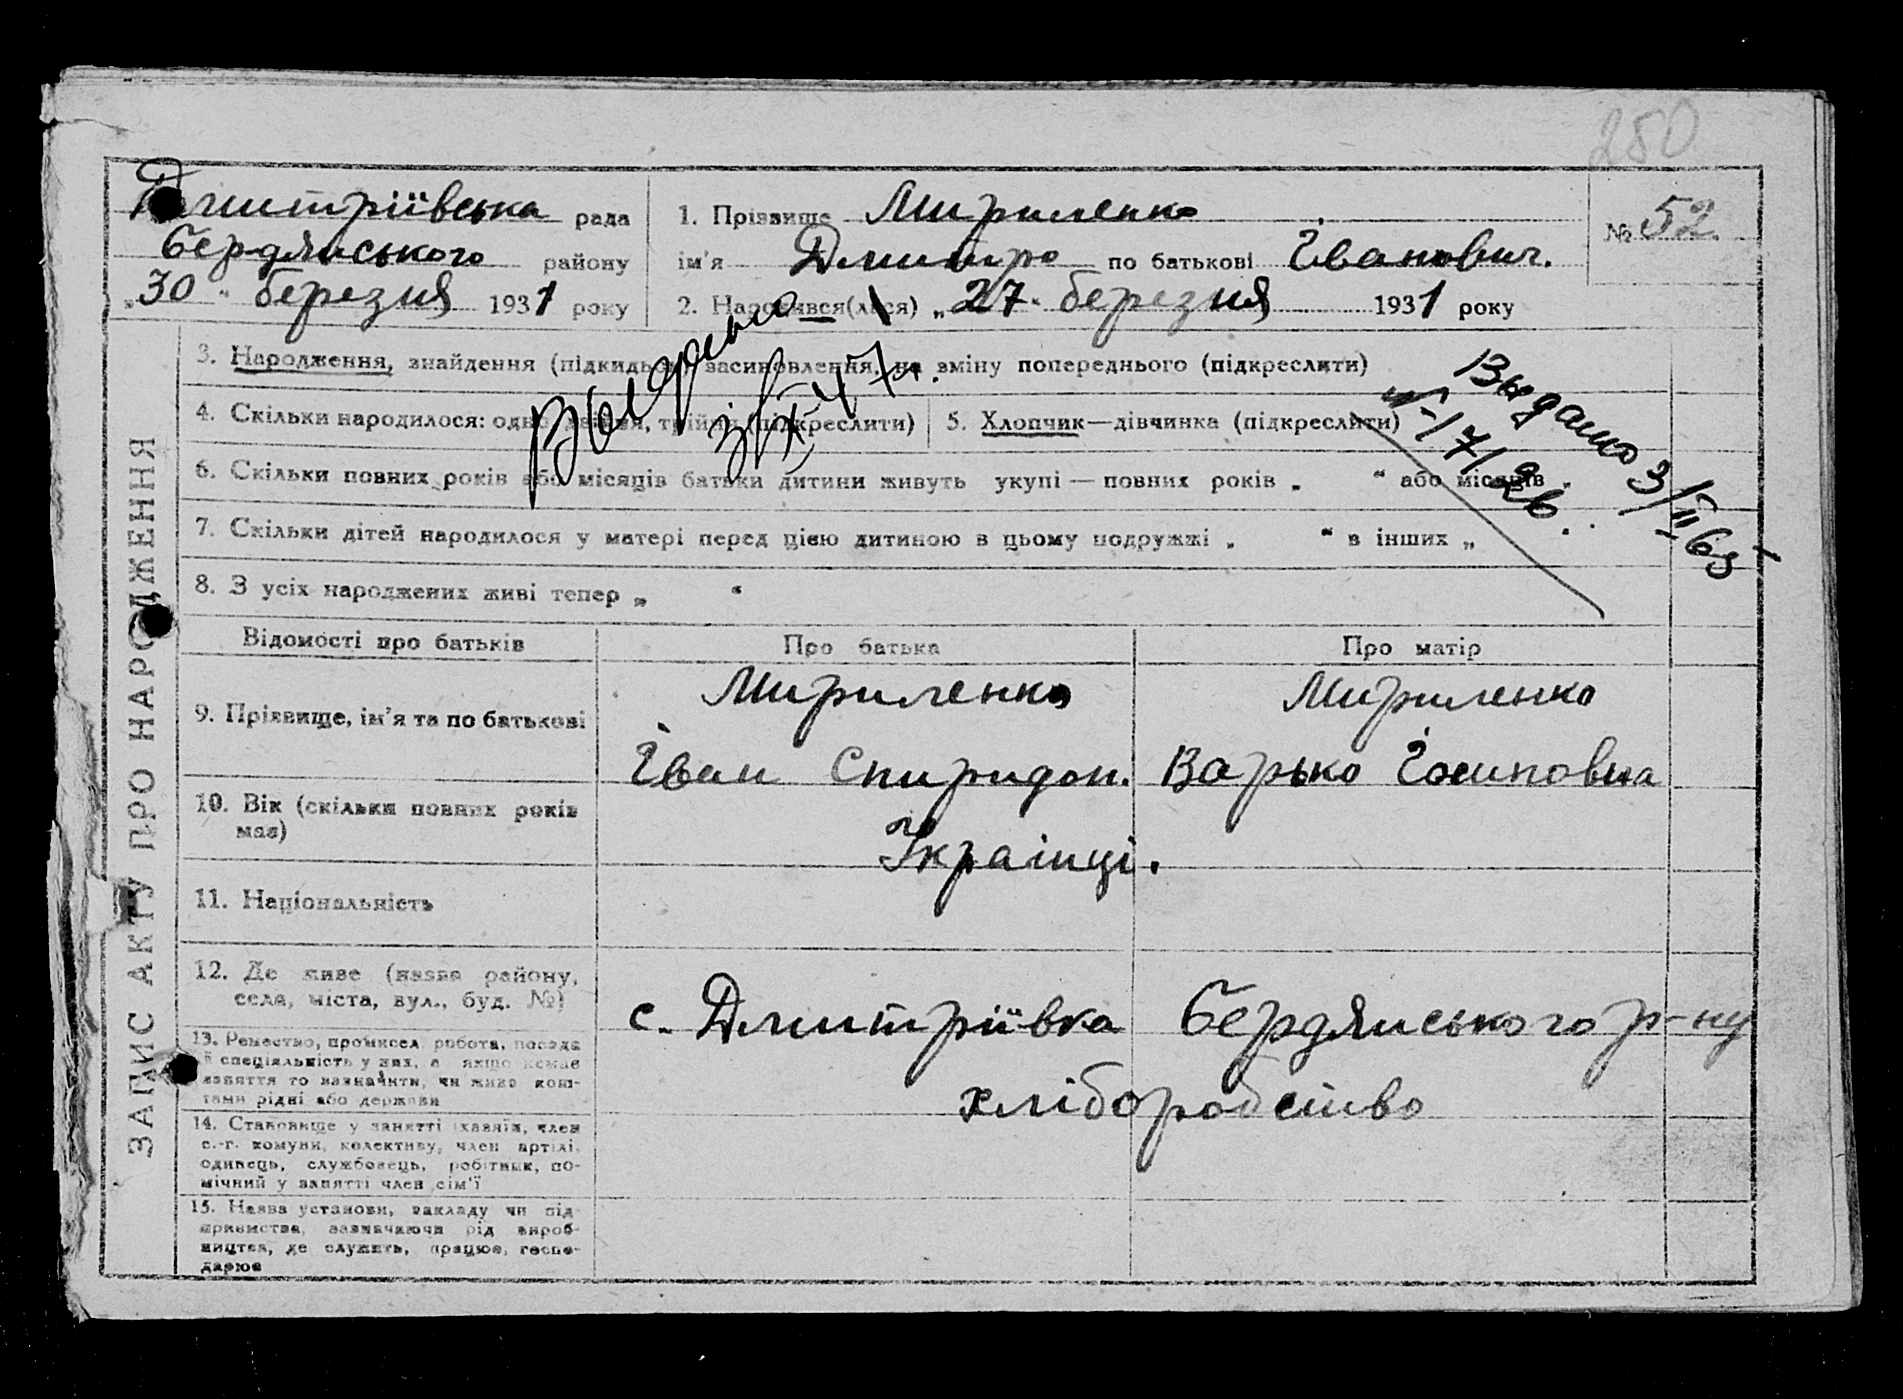 280
Дмитріївська рада
Бердянського району
„30“ березня 1931 року
1. Прізвище Мириленко
ім'я Дмитро по батькові Іванович.
№ 52
2. Народився(лася) „27“ березня 1931 року
3. Народження, знайдення (підкидьок) засиновлення, на зміну попереднього (підкреслити)
4. Скільки народилося: одно, двійня, трійня (підкреслити)
5. Хлопчик—дівчинка (підкреслити)
6. Скільки повних років або місяців батьки дитини живуть укупі — повних років „ “ або місяців „
7. Скільки дітей народилося у матері перед цією дитиною в цьому подружжі „ “ в інших „
8. З усіх народжених живі тепер „ “
Выдано
47г.
Выдано 3/II 65
ЗАПИС АКТУ ПРО НАРОДЖЕННЯ
Відомості про батьків
Про батька
Про матір
9. Прізвище, ім'я та по батькові
Мириленко
Іван Спиридон.
Мириленко
Варько Йосиповна
10. Вік (скільки повних років
має)
Українці.
11. Національність
12. Де живе (назва району,
села, міста, вул., буд. №)
с. Дмитріївка Бердянського р-ну
13. Ремество, промисел, робота, посада
й спеціяльність у них, а якщо немає
заняття то зазначити, чи живе кош-
тами рідні або держави
хліборобство
14. Становище у занятті (хазяїн, член
с.-г. комуни, колективу, член артілі,
одинець, службовець, робітник, по-
мічний у занятті член сім'ї
15. Назва установи, закладу чи під-
приємства, зазначаючи рід вироб-
ництва, де служить, працює, госпо-
дарює